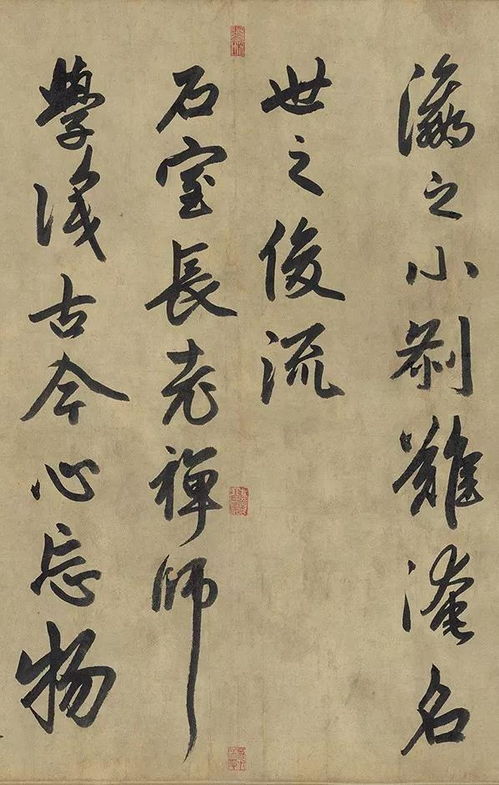 瀛之小刹難淹名
世之俊流
石室長老禪師
學識古今心忘物